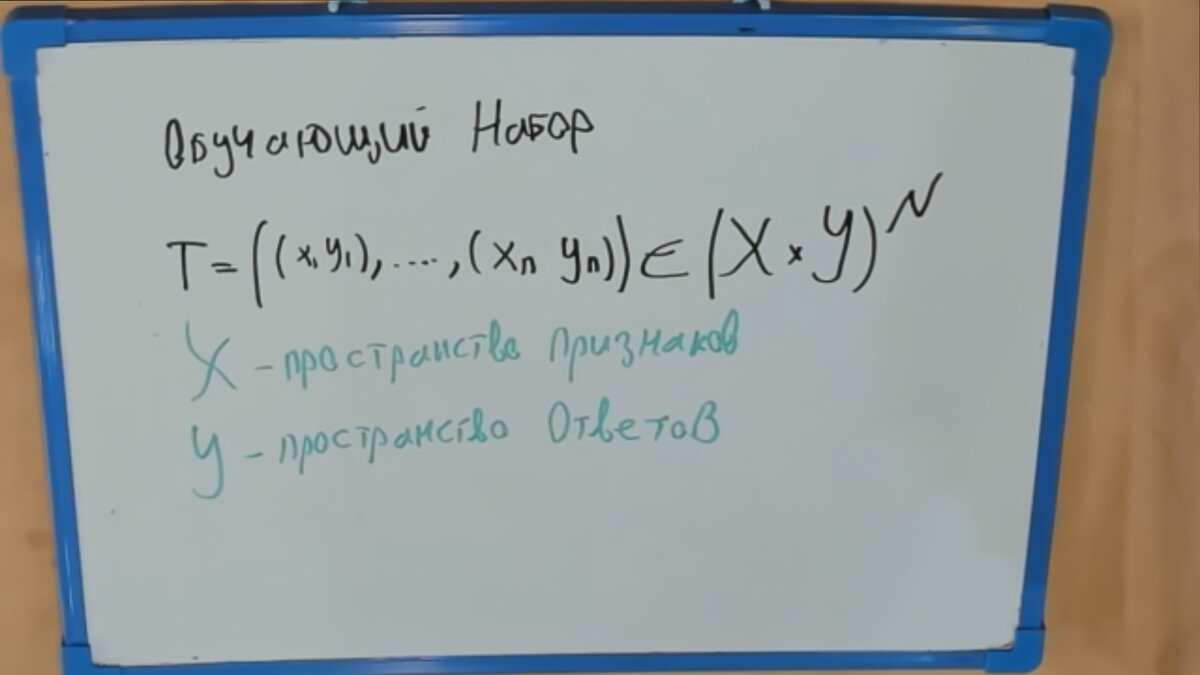 Обучающий Набор
T = ((x₁ y₁), ...., (xₙ yₙ)) ∈ (X × Y)ᴺ
X - пространство признаков
Y - пространство Ответов